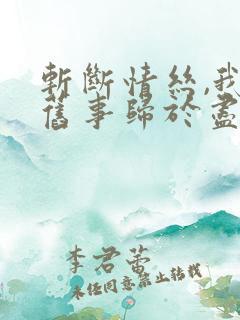 斬斷情絲,我
舊事歸於盡
李君蕾
未任同意禁止转载